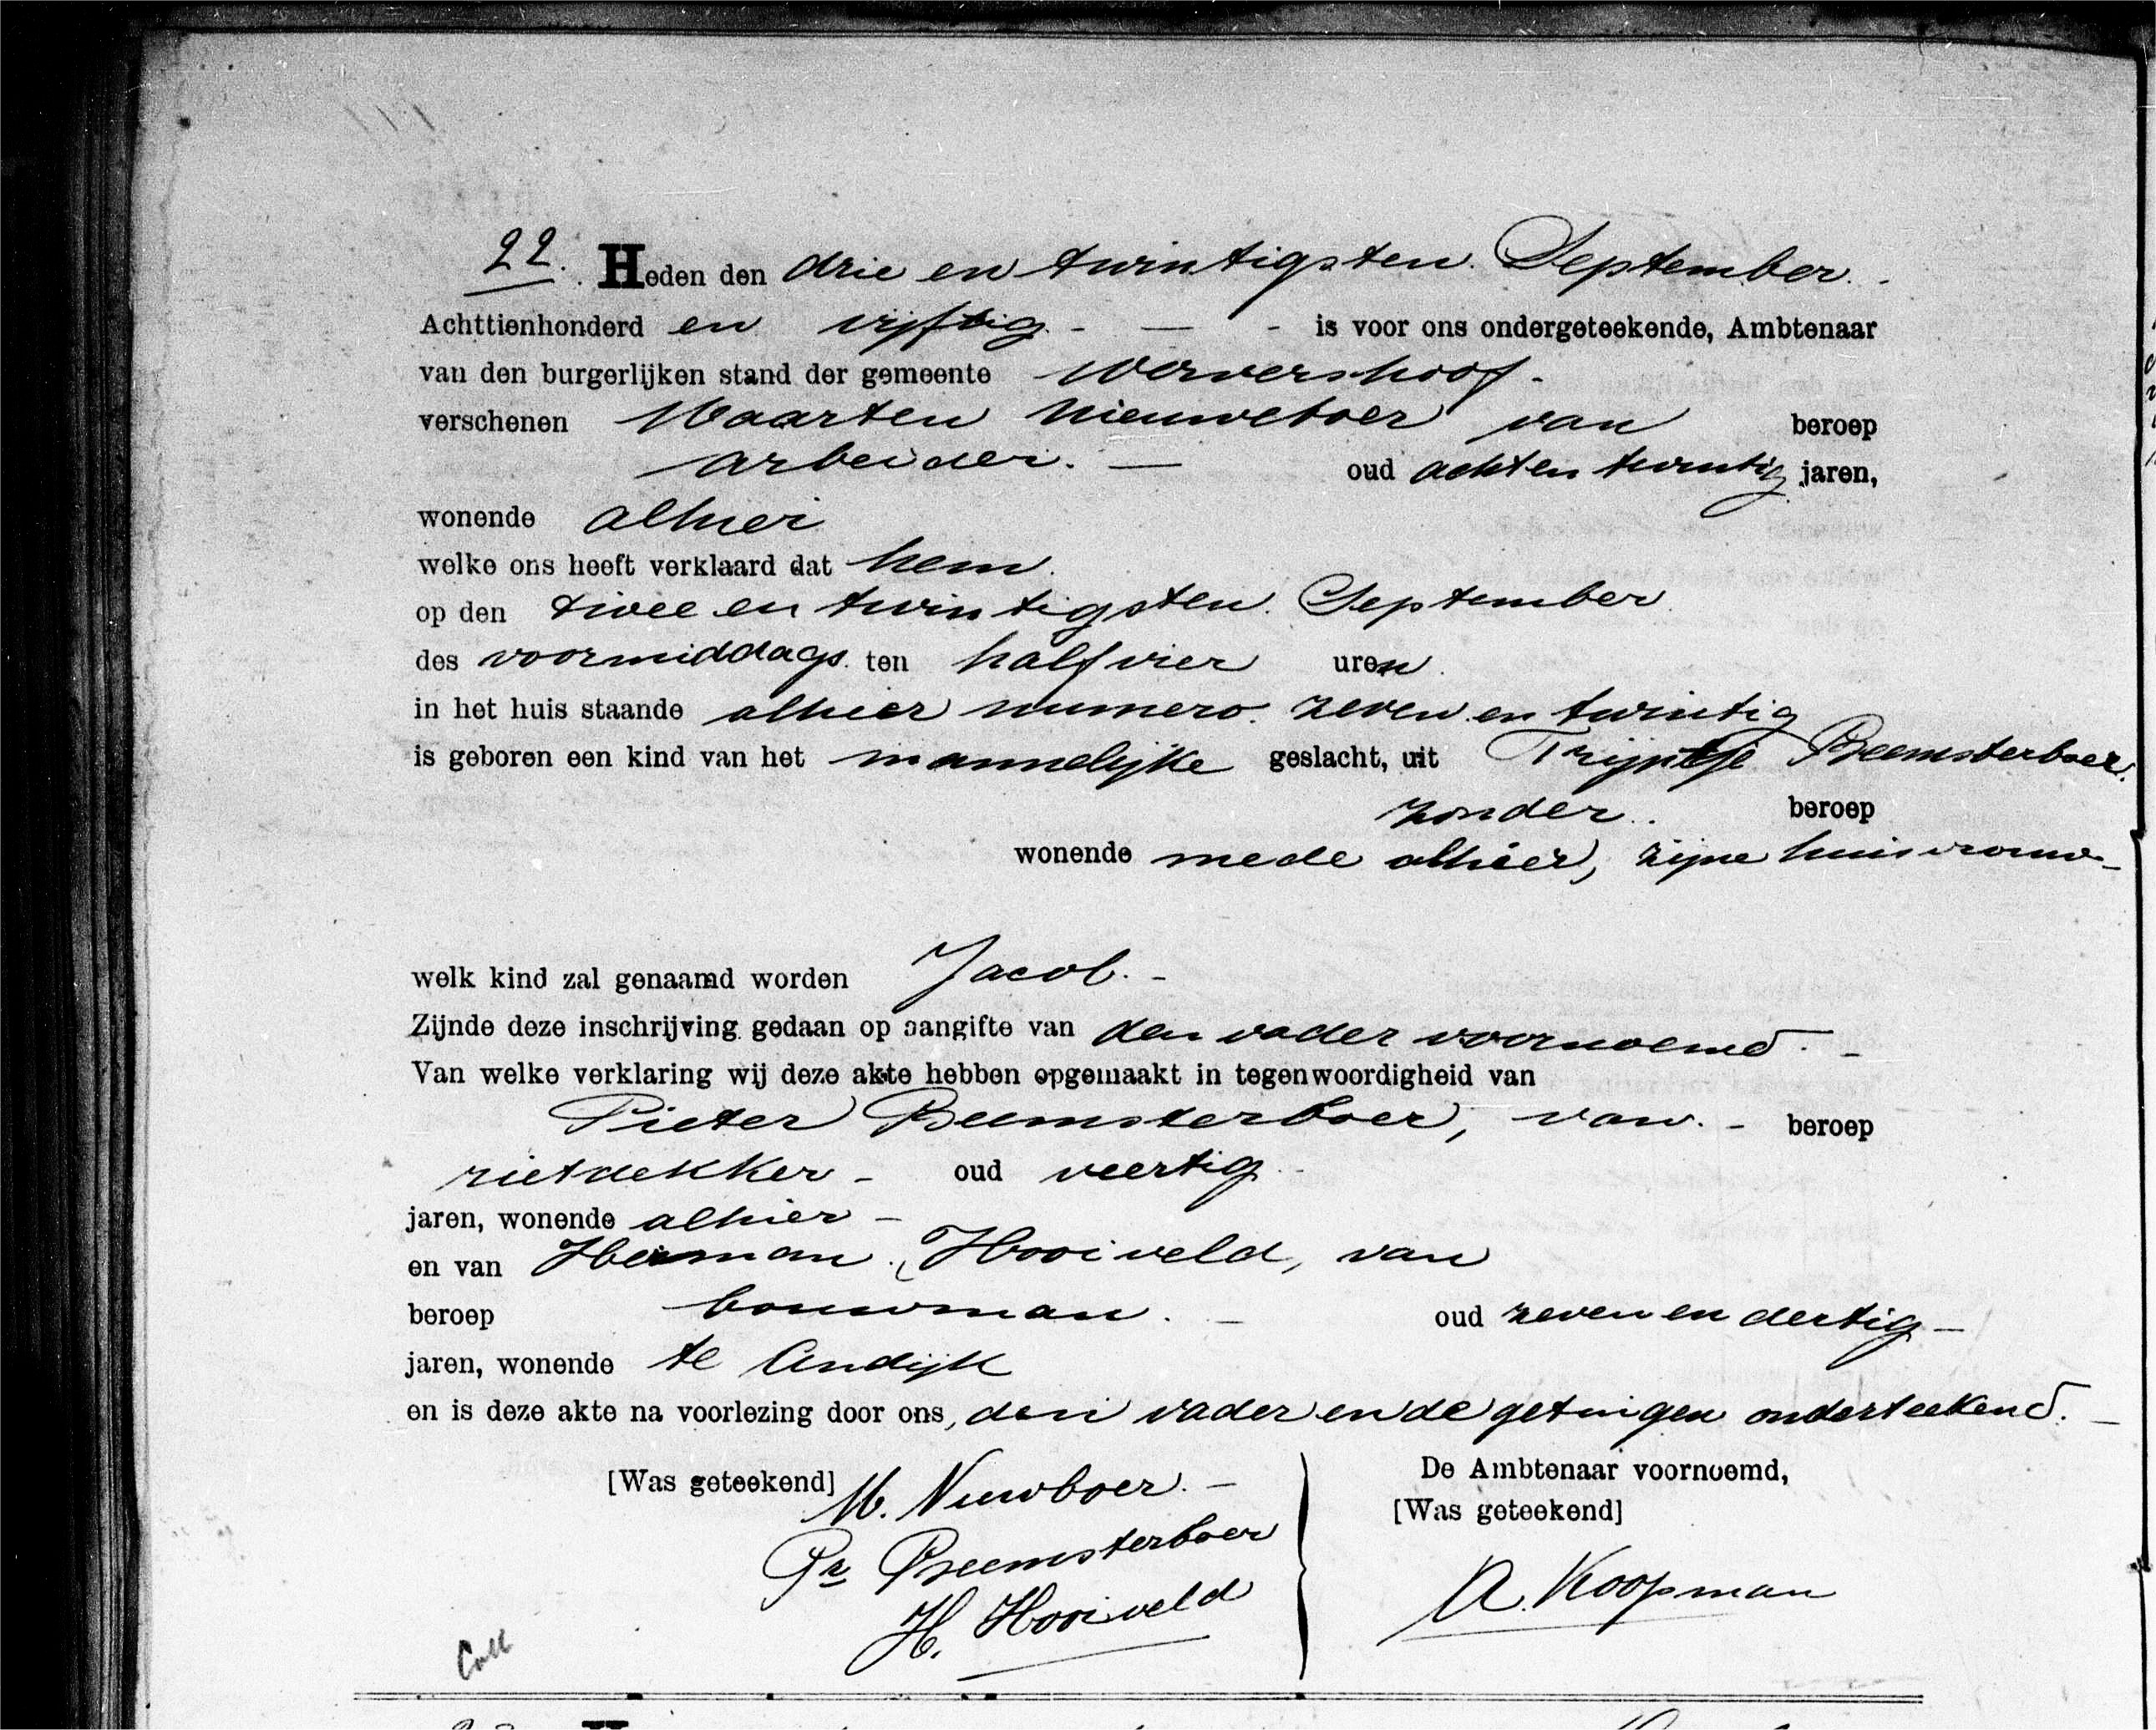 22. Heden den drie en twintigsten September.
Achttienhonderd en vijftig - — - is voor ons ondergeteekende, Ambtenaar
van den burgerlijken stand der gemeente Wervershoof.
verschenen Maarten Nieuweboer van beroep
arbeider. — oud acht en twintig jaren,
wonende alhier
welke ons heeft verklaard dat hem
op den twee en twintigsten September
des voormiddags ten half vier uren
in het huis staande alhier numero zeven en twintig
is geboren een kind van het mannelijke geslacht, uit Trijntje Beemsterboer.
zonder beroep
wonende mede alhier, zijne huisvrouw -
welk kind zal genaamd worden Jacob. -
Zijnde deze inschrijving gedaan op aangifte van den vader voornoemd. -
Van welke verklaring wij deze akte hebben opgemaakt in tegenwoordigheid van
Pieter Beemsterboer, van - beroep
rietdekker - oud veertig
jaren, wonende alhier -
en van Herman Hooiveld, van
beroep bouwman. — oud zeven en dertig -
jaren, wonende te Andijk
en is deze akte na voorlezing door ons, den vader en de getuigen onderteekend. -
[Was geteekend] M. Nieuwboer. - De Ambtenaar voornoemd,
Pr Beemsterboer [Was geteekend]
H. Hooiveld A. Koopman
Coll